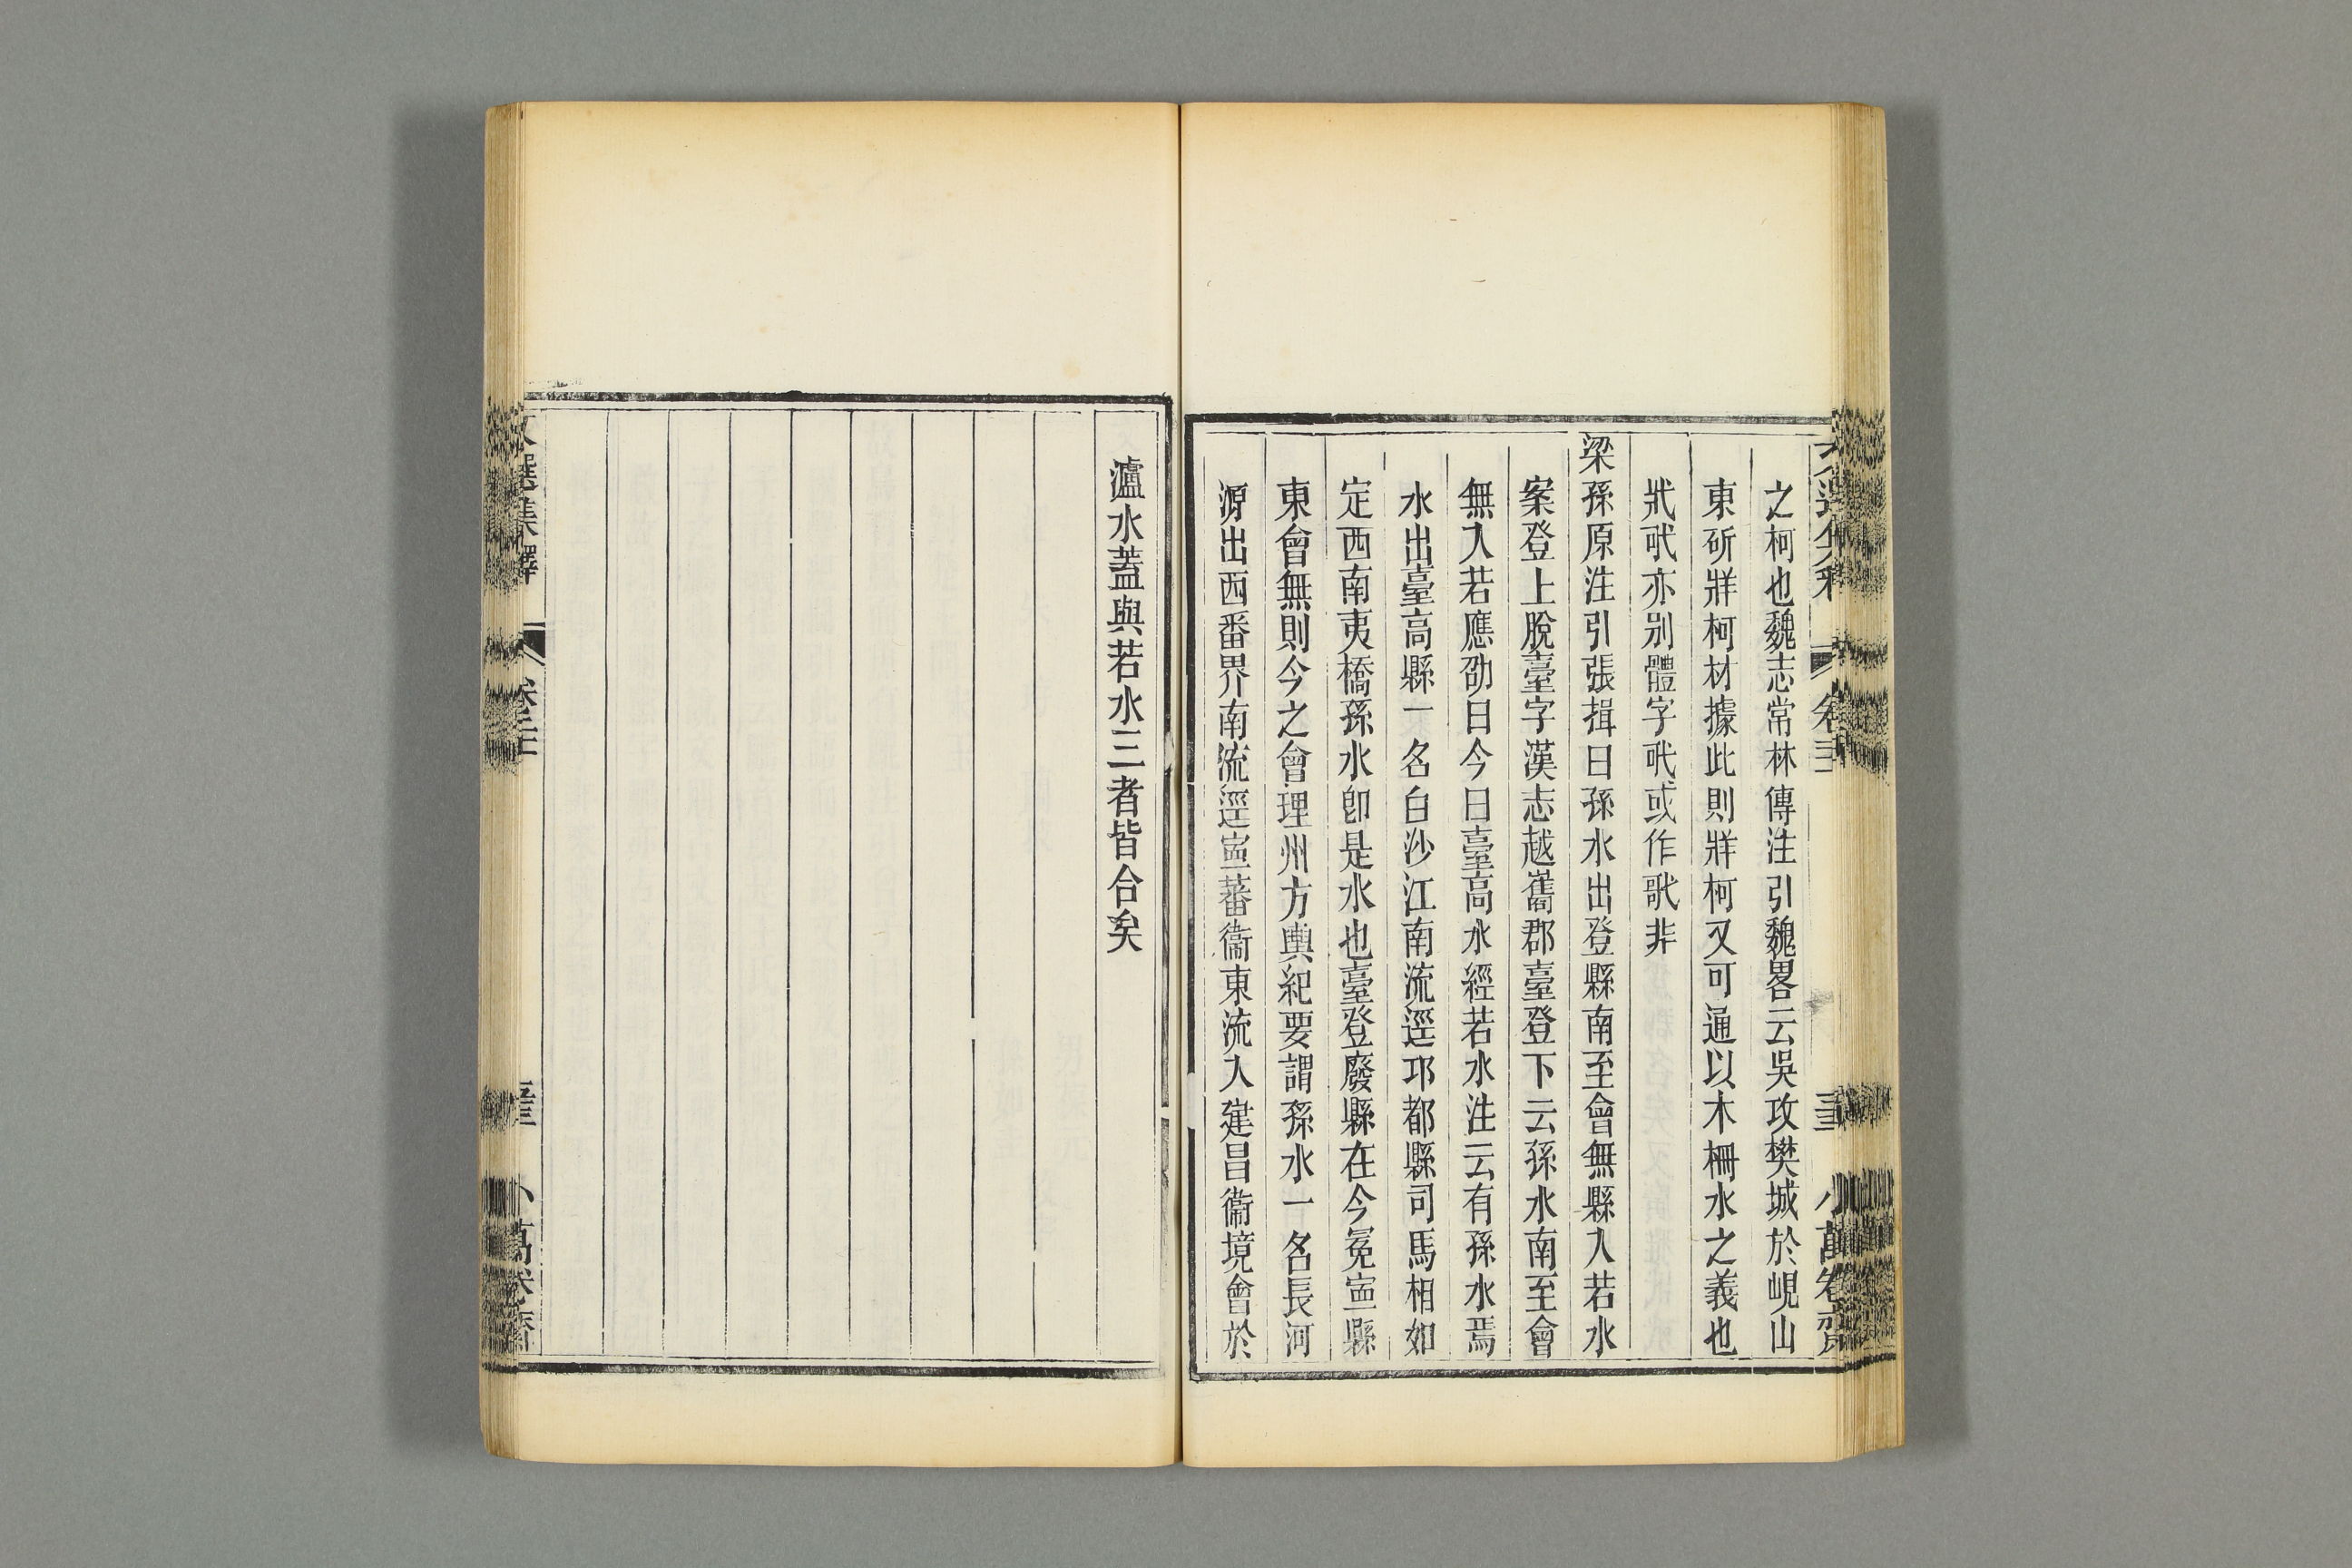 之柯也魏志常林傳注引魏畧云吳攻樊城於峴山
東斫牂柯材據此則牂柯又可通以木柵水之義也
牂㦵亦别體字㦵或作歌非
梁孫原注引張揖曰孫水出登縣南至會無縣入若水
案登上脫臺字漢志越嶲郡臺登下云孫水南至會
無入若應劭曰今曰臺高水經若水注云有孫水焉
水出臺高縣一名白沙江南流逕邛都縣司馬相如
定西南夷橋孫水卽是水也臺登廢縣在今冕寍縣
東會無則今之會理州方輿紀要謂孫水一名長河
源出西番界南流逕寍蕃衞東流入建昌衞境會於
瀘水蓋與若水三者皆合矣
文選集釋
小萬卷齋